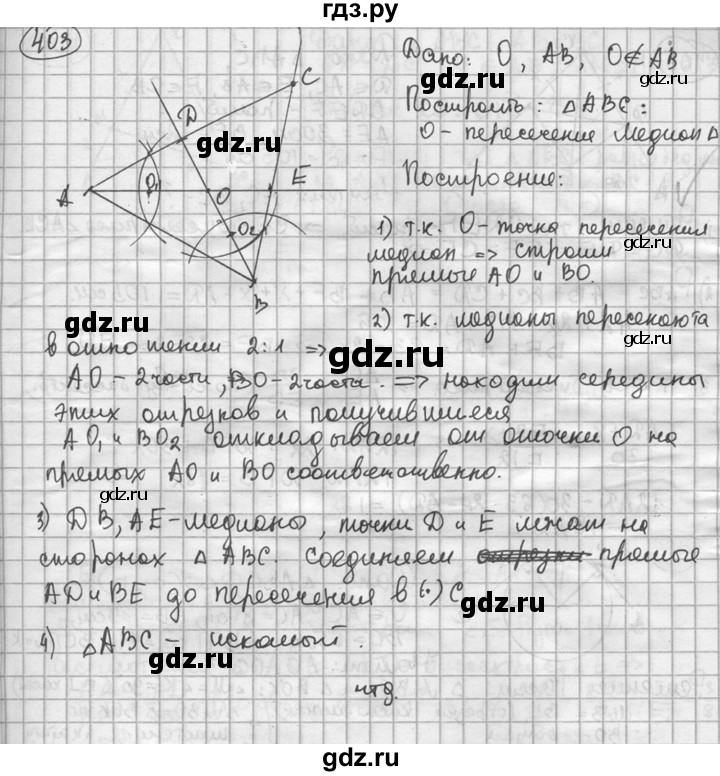 гдз.ру
403
Дано: O, AB, O∉AB
Построить: △ABC:
O - пересечение медиан △
Построение:
1) т.к. O - точка пересечения
медиан => строим
прямые AO и BO.
2) т.к. медианы пересекаются
в отношении 2:1 =>
AO - 2 части, BO - 2 части. => находим середины
этих отрезков и получившиеся
AO₁ и BO₂ откладываем от точки O на
прямых AO и BO соответственно.
3) DB, AE - медианы, точки D и E лежат на
сторонах △ABC соединяем прямые
AD и BE до пересечения в (·) C
4) △ABC - искомый.
чтд.
A
D
C
O₁
O
E
O₂
B
gdz.ru
gdz.ru
gdz.ru
gdz.ru
gdz.ru
gdz.ru
gdz.ru
gdz.ru
gdz.ru
gdz.ru
gdz.ru
gdz.ru
gdz.ru
gdz.ru
гдз.ру